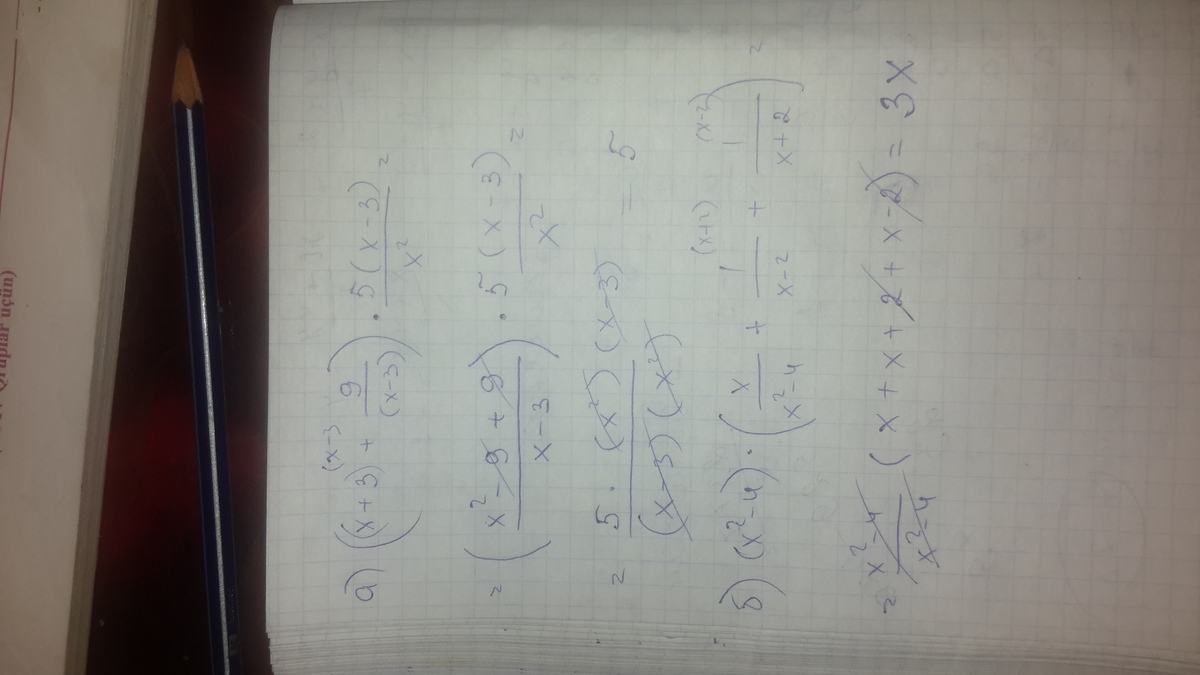 (Qruplar üçün)
a) ((x+3)^(x-3 + 9/(x-3)) · 5(x-3)/x² =
= ((x²-9+9)/(x-3)) · 5(x-3)/x² =
= 5·(x²)(x-3)/((x-3)(x²)) = 5
б) (x²-4)·(x/(x²-4) + 1/(x-2)^(x+2) + 1/(x+2)^(x-2)) =
= (x²-4)/(x²-4) (x+x+2+x-2) = 3x